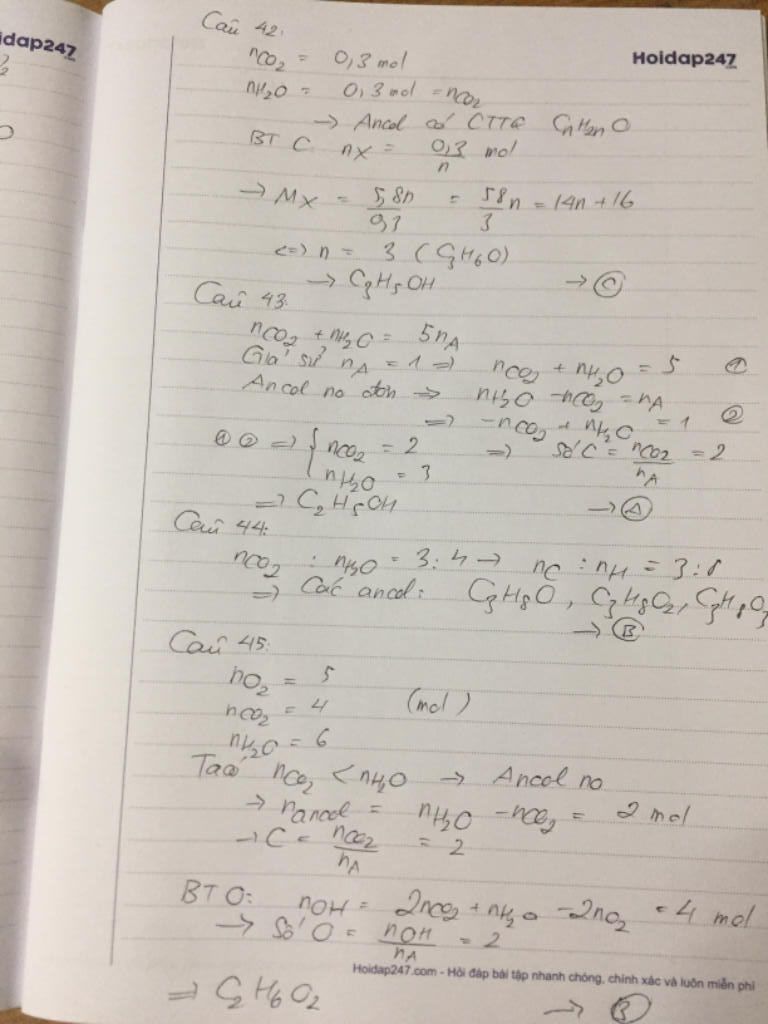 idap247
Hoidap247
Câu 42:
nCO₂ = 0,3 mol
nH₂O = 0,3 mol = nCO₂
→ Ancol có CTTQ CnH2nO
BT C nX = 0,3/n mol
→ MX = 5,8n/0,3 = 58/3 n = 14n + 16
<=> n = 3 (C₃H₆O)
→ C₃H₅OH → Ⓒ
Câu 43:
nCO₂ + nH₂O = 5nA
Giả sử nA = 1 => nCO₂ + nH₂O = 5 ①
Ancol no đơn => nH₂O - nCO₂ = nA
=> -nCO₂ + nH₂O = 1 ②
① ② => { nCO₂ = 2 => Số C = nCO₂/nA = 2
nH₂O = 3
=> C₂H₅OH → Ⓐ
Câu 44:
nCO₂ : nH₂O = 3:4 → nC : nH = 3:8
=> Các ancol: C₃H₈O, C₃H₈O₂, C₃H₈O₃
→ Ⓑ
Câu 45:
nO₂ = 5
nCO₂ = 4 (mol)
nH₂O = 6
Ta có nCO₂ < nH₂O → Ancol no
→ nancol = nH₂O - nCO₂ = 2 mol
→ C = nCO₂/nA = 2
BT O: nOH = 2nCO₂ + nH₂O - 2nO₂ = 4 mol
→ Số O = nOH/nA = 2
Hoidap247.com - Hỏi đáp bài tập nhanh chóng, chính xác và luôn miễn phí
=> C₂H₆O₂ → Ⓑ